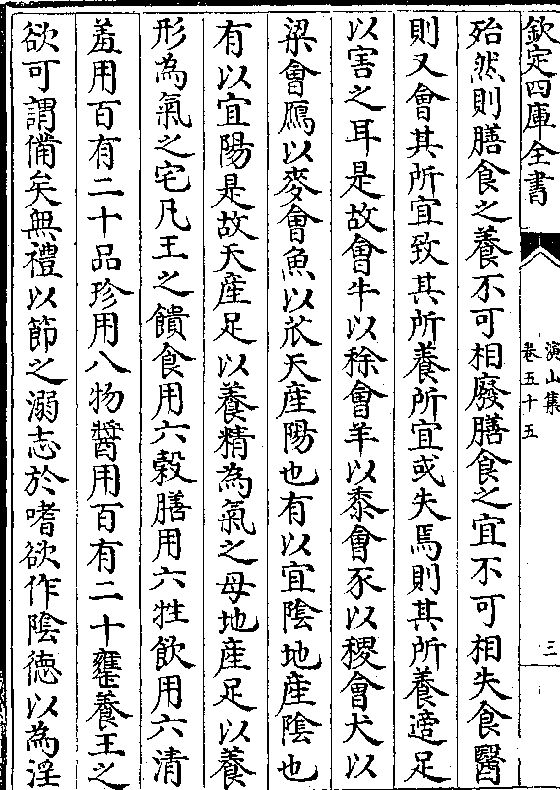 欽定四庫全書
演山集
卷五十五
三
殆然則膳食之養不可相廢膳食之宜不可相失食醫
則又會其所宜致其所養所宜或失焉則其所養適足
以害之耳是故會牛以稌會羊以黍會豕以稷會犬以
梁會鴈以麥會魚以苽天產陽也有以宜陰地產陰也
有以宜陽是故天產足以養精為氣之母地產足以養
形為氣之宅凡王之饋食用六穀膳用六牲飲用六清
羞用百有二十品珍用八物醬用百有二十罋養王之
欲可謂備矣無禮以節之溺志於嗜欲作陰德以為淫